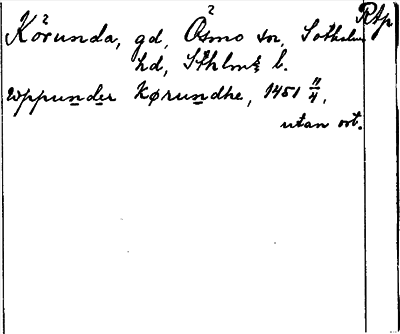 Rtp
Körunda, gd, Ösmo sn, Sotholms
hd, Sthlms l.
vppunder Kørundhe, 1451 11/4,
utan ort.